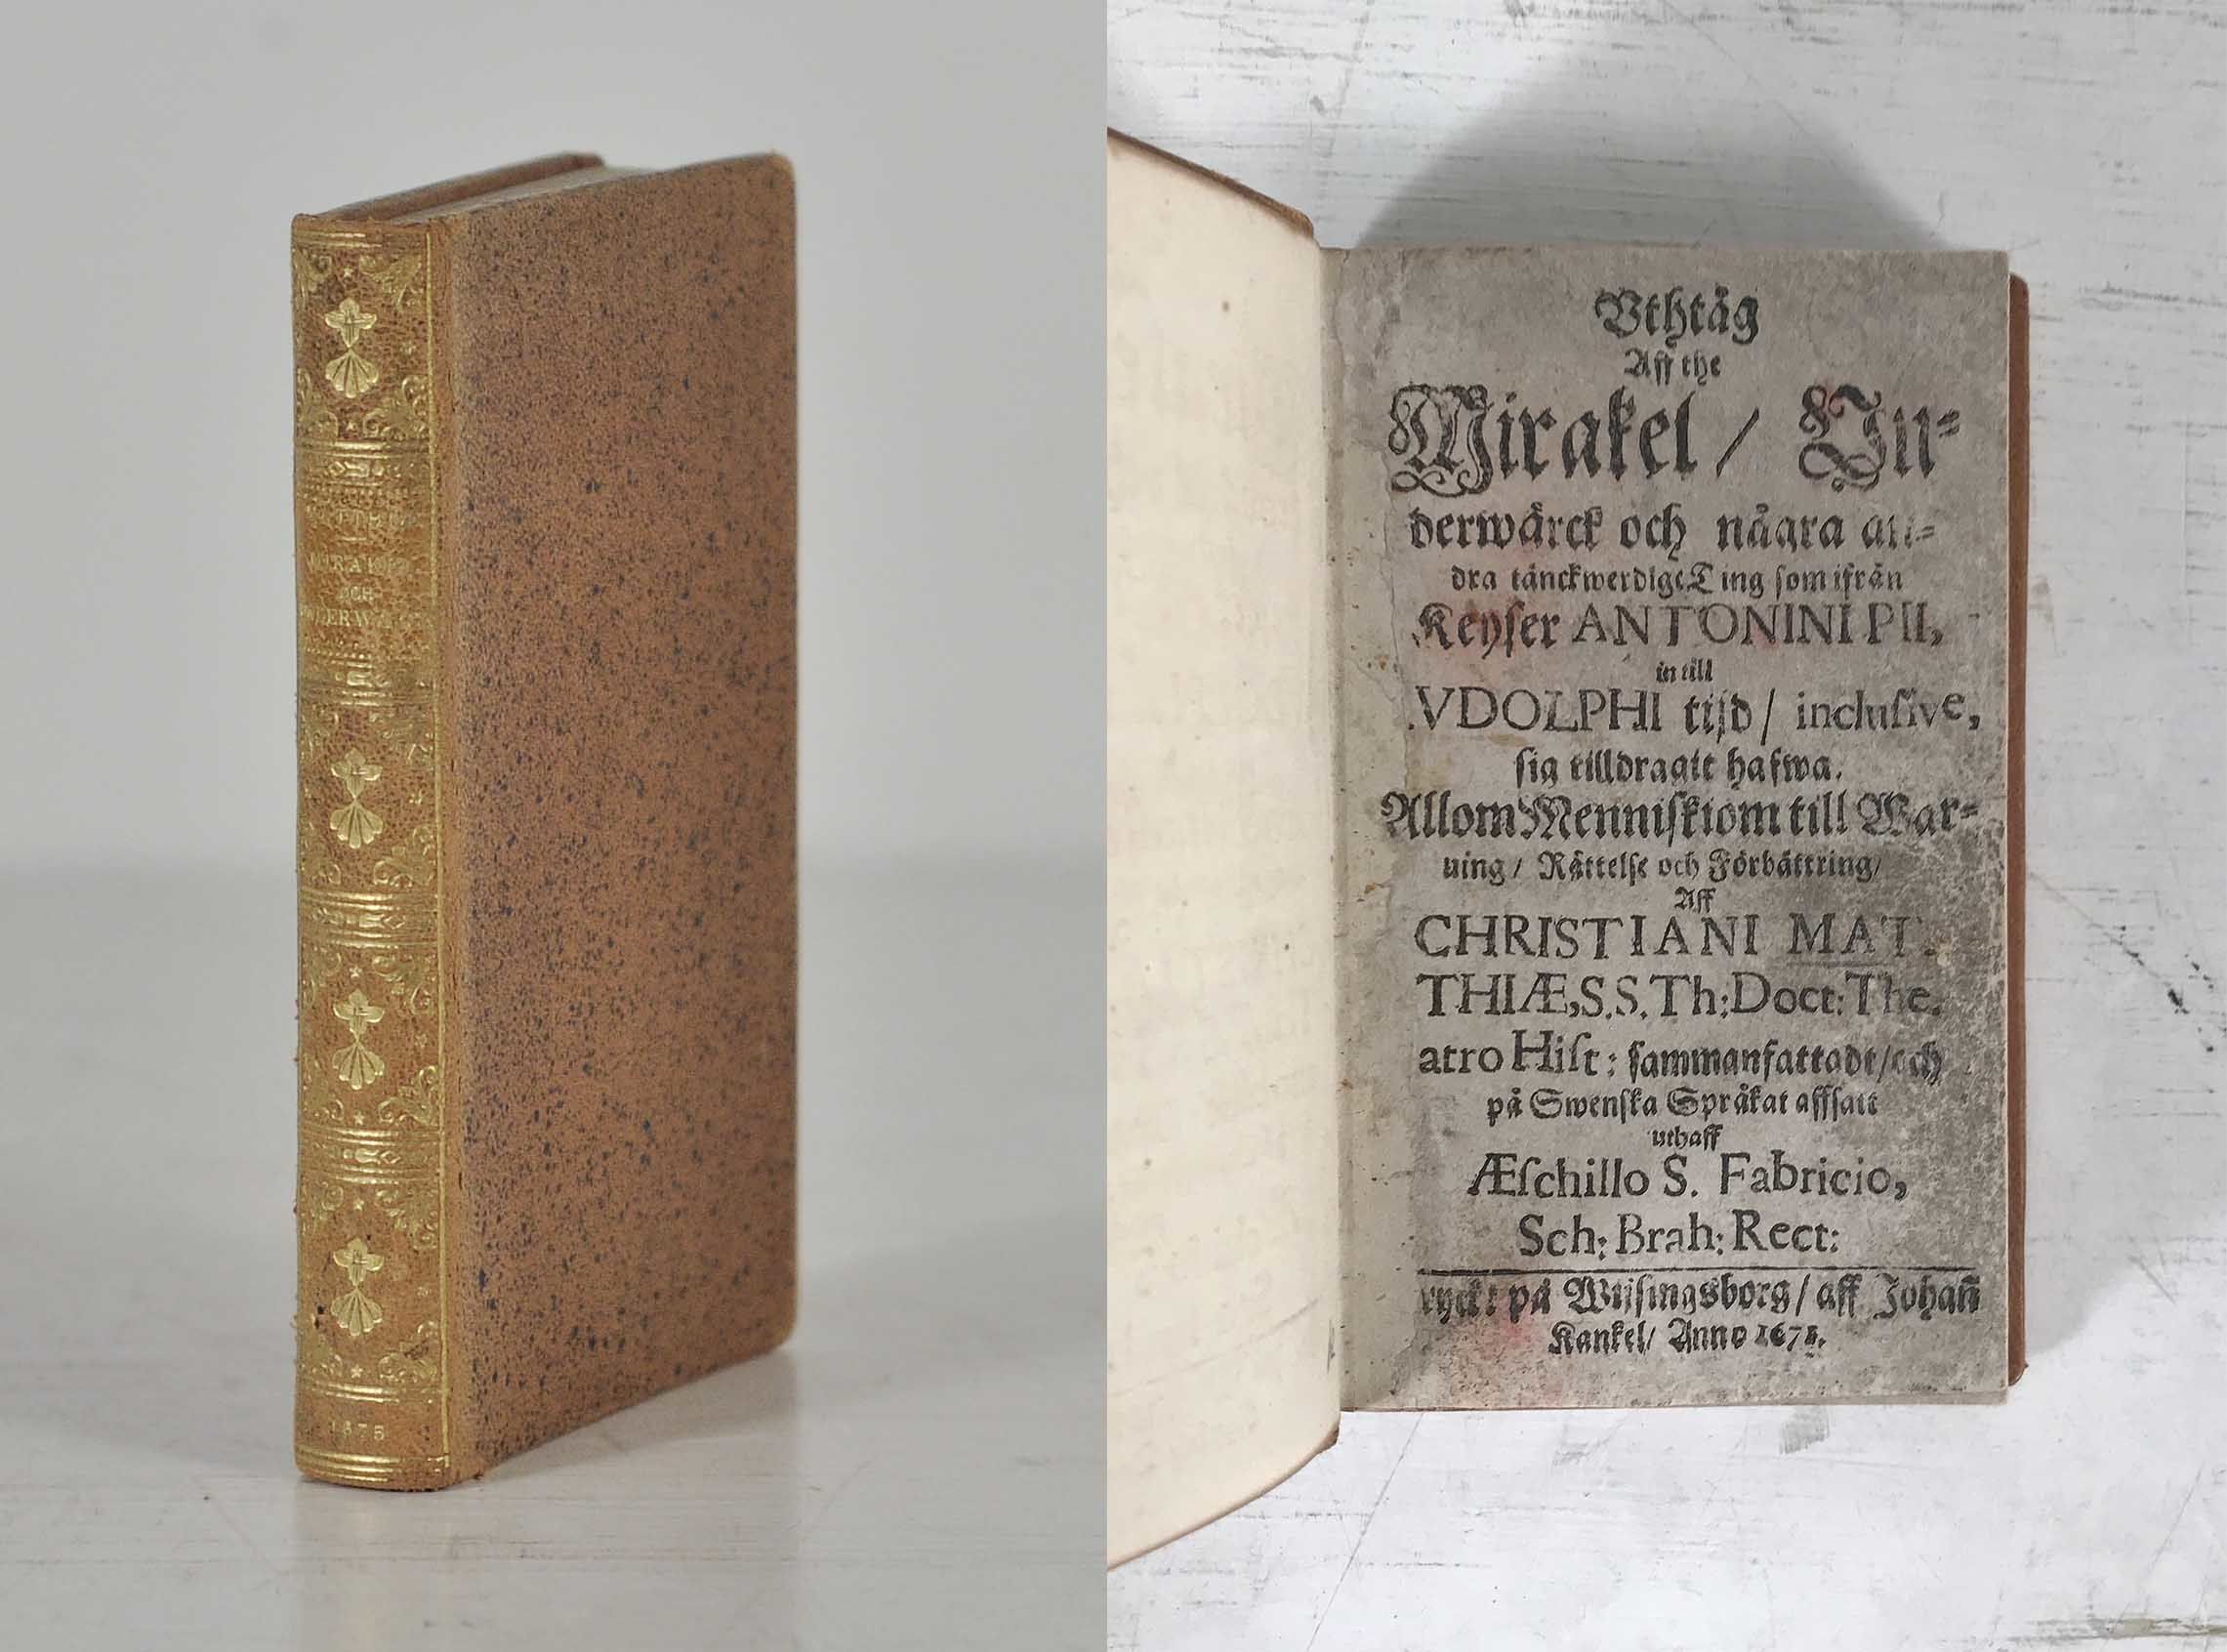 MIRAKEL
OCH
1675
Vthtåg
Aff the
Mirakel / Vn-
derwärck och några an-
dra tänckwerdige Ting som ifrån
Keyser ANTONINI PII,
in till
VDOLPHI tijd / inclusive,
sig tilldragit hafwa.
Allom Menniskiom till War-
ning / Rättelse och Förbättring /
Aff
CHRISTIANI MAT.
THIÆ, S.S. Th: Doct: The.
atro Hist: sammanfattadt / och
på Swenska Språkat affsatt
uthaff
Æschillo S. Fabricio,
Sch: Brah: Rect:
ryckt på Wijsingsborg / aff Johan̄
Kankel / Anno 1675.